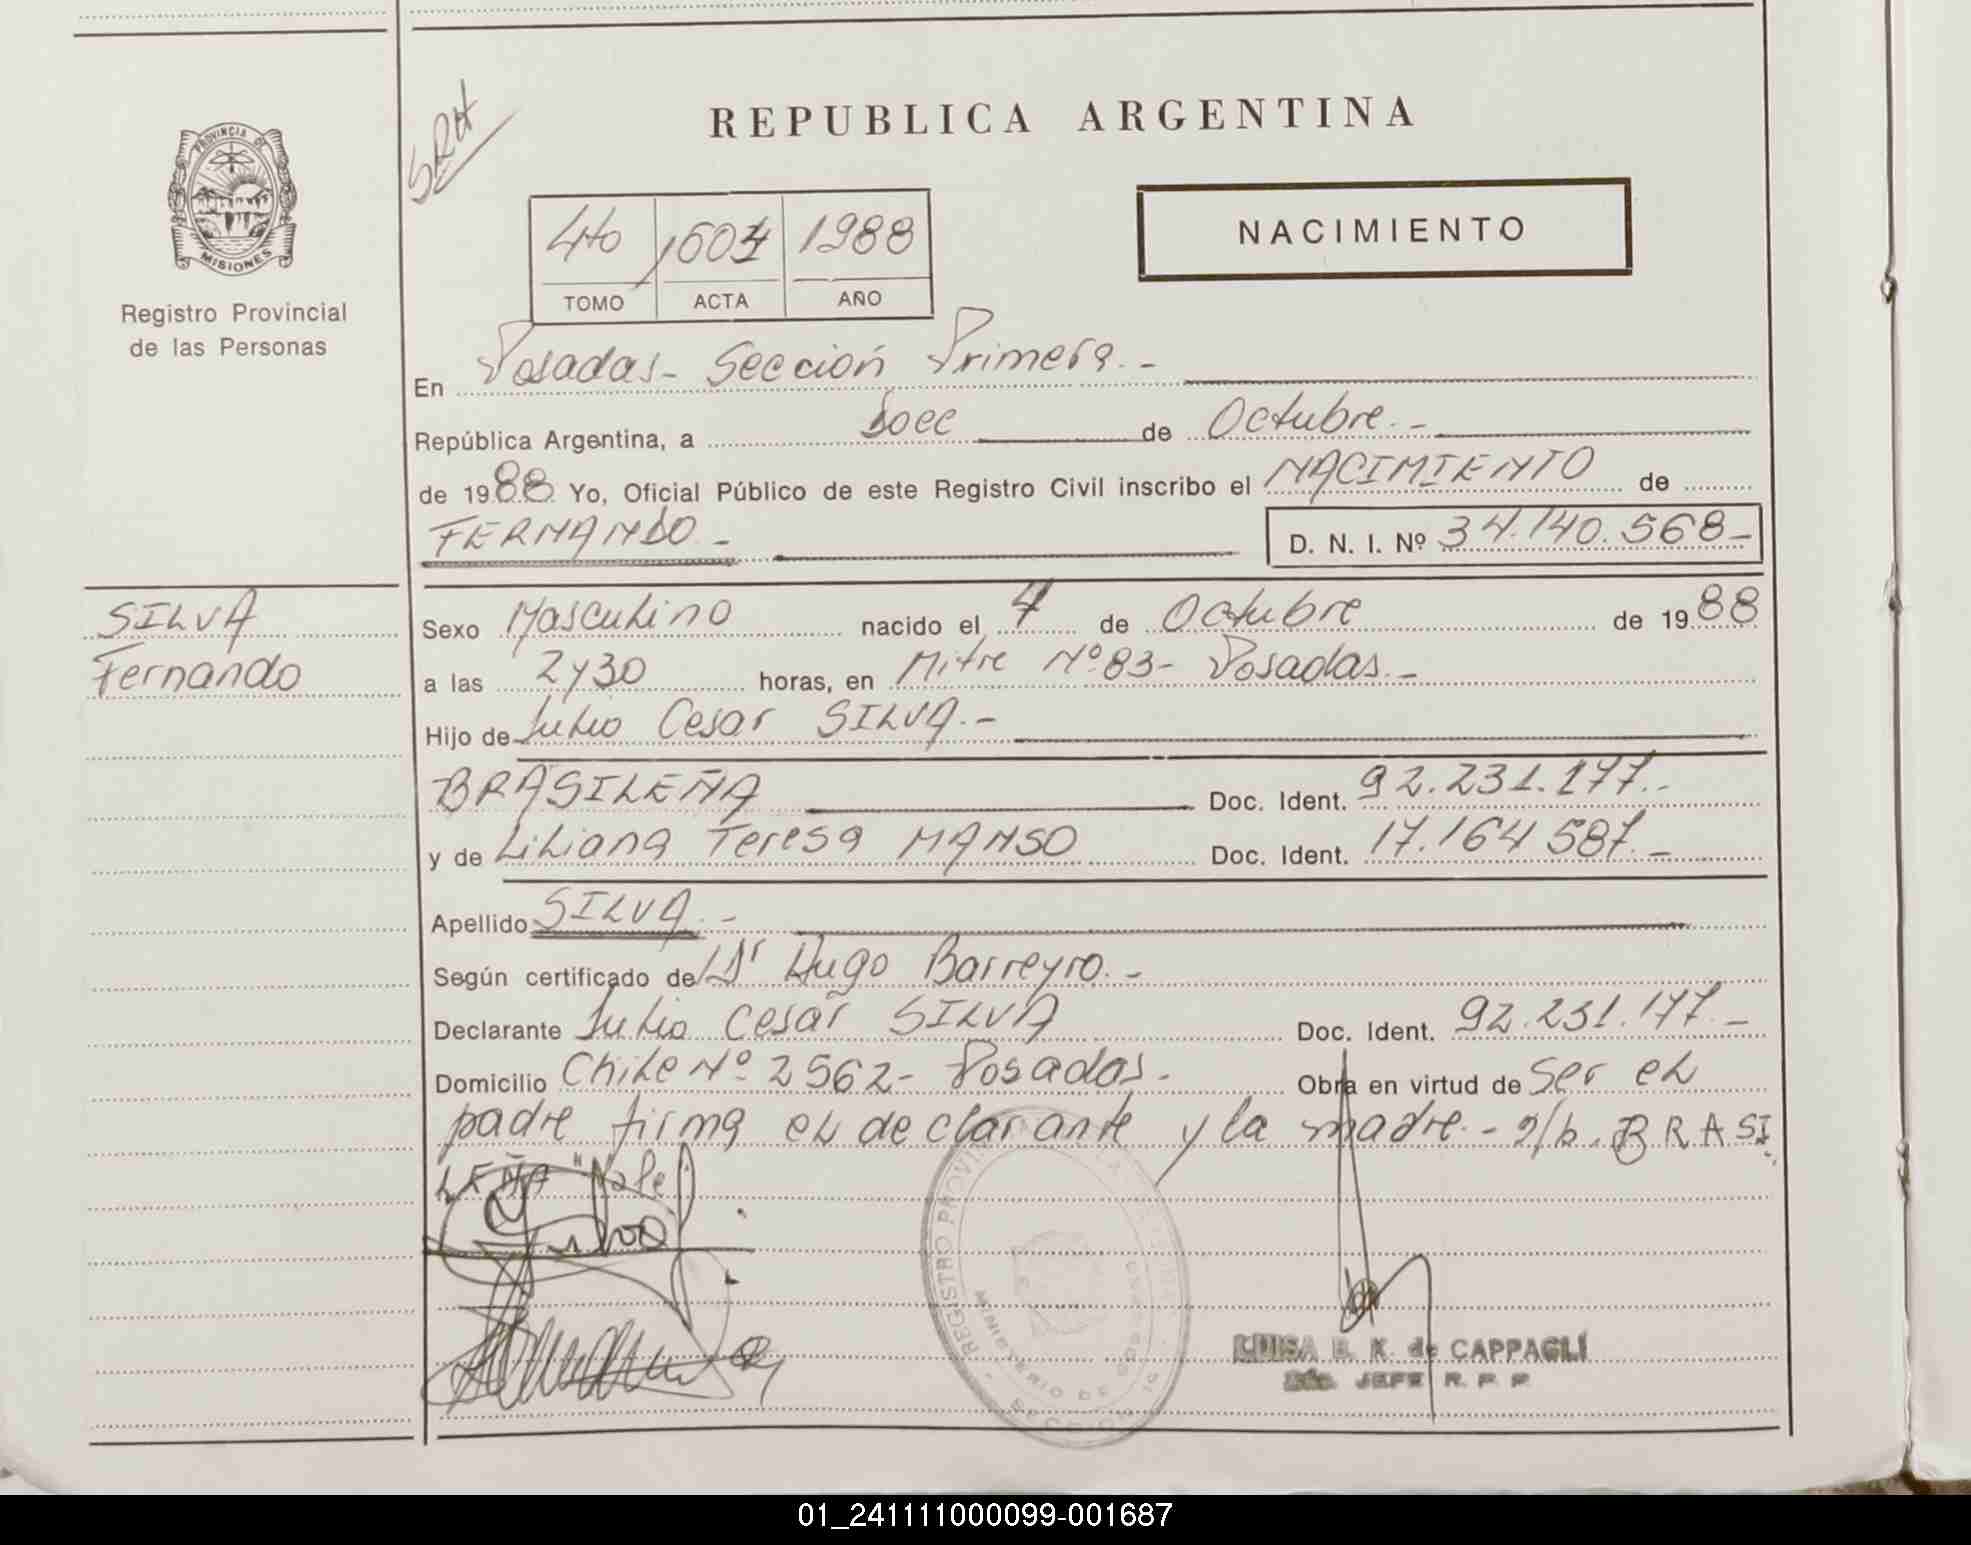 REPUBLICA ARGENTINA
SRH
PROVINCIA DE
MISIONES
Registro Provincial
de las Personas
4to 1604 1988
TOMO ACTA AÑO
NACIMIENTO
En Posadas- Sección Primera.-
República Argentina, a Doce de Octubre.-
de 1988 Yo, Oficial Público de este Registro Civil inscribo el NACIMIENTO de
FERNANDO.-
D. N. I. Nº 34.140.568-
SILVA
Fernando
Sexo Masculino nacido el 4 de Octubre de 1988
a las 2y30 horas, en Mitre Nº 83- Posadas.-
Hijo de Julio Cesar SILVA.-
BRASILEÑA Doc. Ident. 92.231.177.-
y de Liliana Teresa MANSO Doc. Ident. 17.164 587.-
Apellido SILVA.-
Según certificado de Dr Hugo Barreyro.-
Declarante Julio Cesar SILVA Doc. Ident. 92.231.177.-
Domicilio Chile Nº 2562- Posadas.- Obra en virtud de Ser el
padre firma el declarante y la madre.- s/b. BRASI
LEÑA "Vale"
REGISTRO PROVINCIAL
MINISTERIO DE GOBIERNO
SECCION 1º
LUISA E. K. de CAPPAGLI
JEFE R. P. P.
01_241111000099-001687